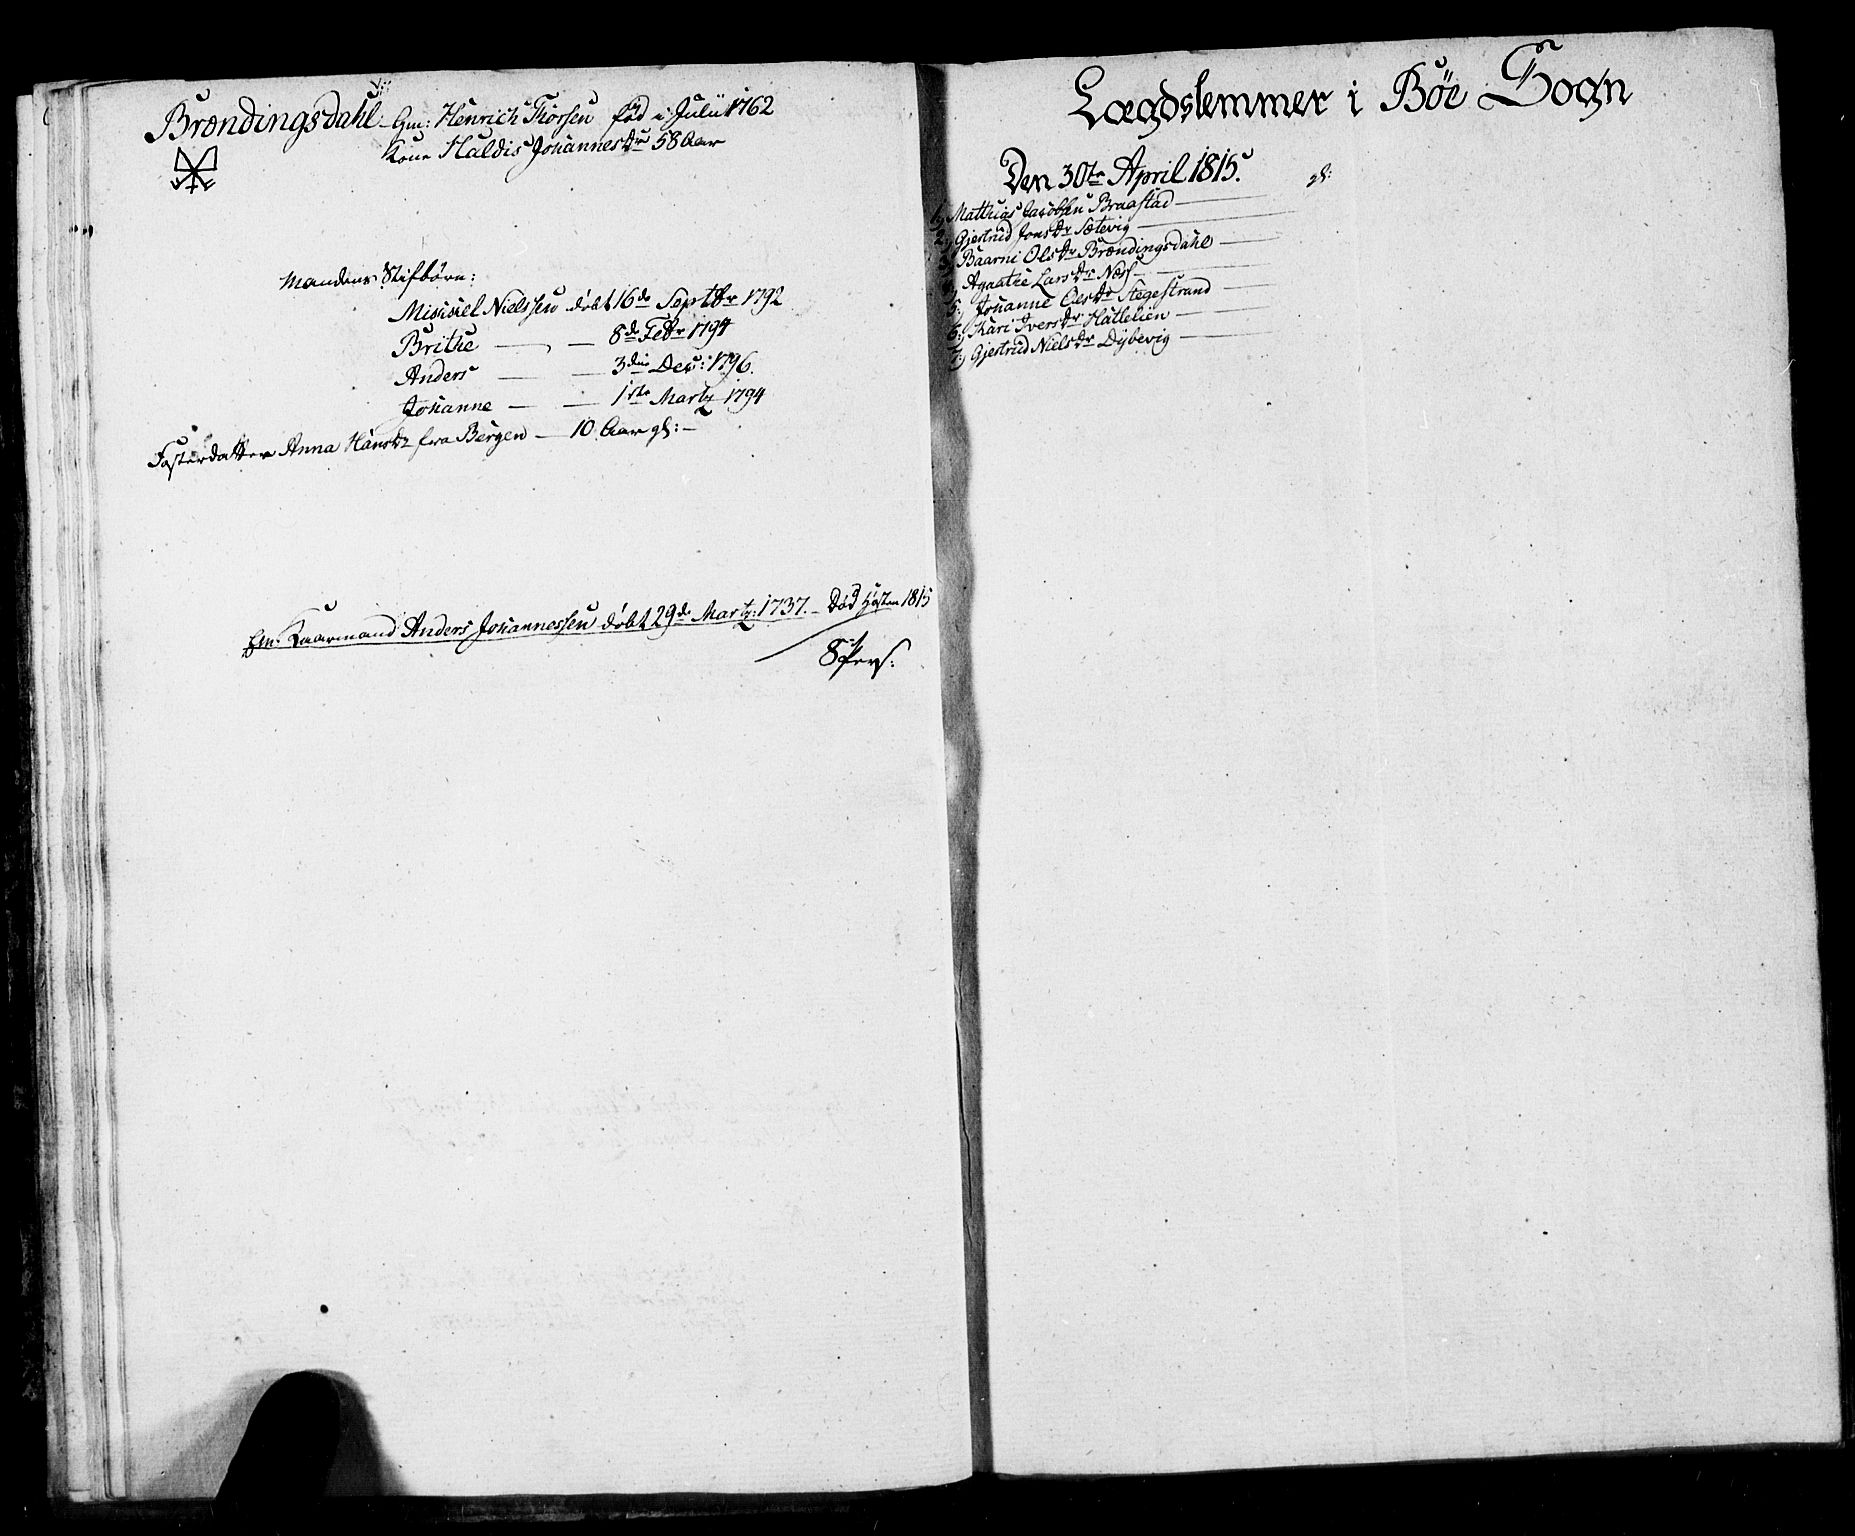 Brændingsdahl Gm: Henrich Thorsen fød i Julii 1762
Kone Haldis Johannesdtr 58 Aar
Mandens Stifbørn:
Michel Nielssen døbt 16de Septbr 1792
Brithe — — 8de Febr 1794
Anders — — 3die Dec: 1796.
Johanne — — 1ste Martz 1794
Fosterdatter Anna Hansdtr fra Bergen — 10 Aar gl: —
Em: Kaarmand Anders Johannessen døbt 29de Martz: 1737. – Død Høsten 1815
8 Pers:
Lægdslemmer i Böe Sogn
Den 30te April 1815.
gl:
1, Mathias Jacobsen Braastad —
2, Gjertrud Jonsdtr Sætevig —
3, Baarni Olsdtr Brændingsdahl —
4, Agathe Larsdtr Næss —
5, Johanne Olsdtr Stegestrand —
6, Kari Iversdtr Hatlelien —
7, Gjertrud Nielsdtr Dybevig —